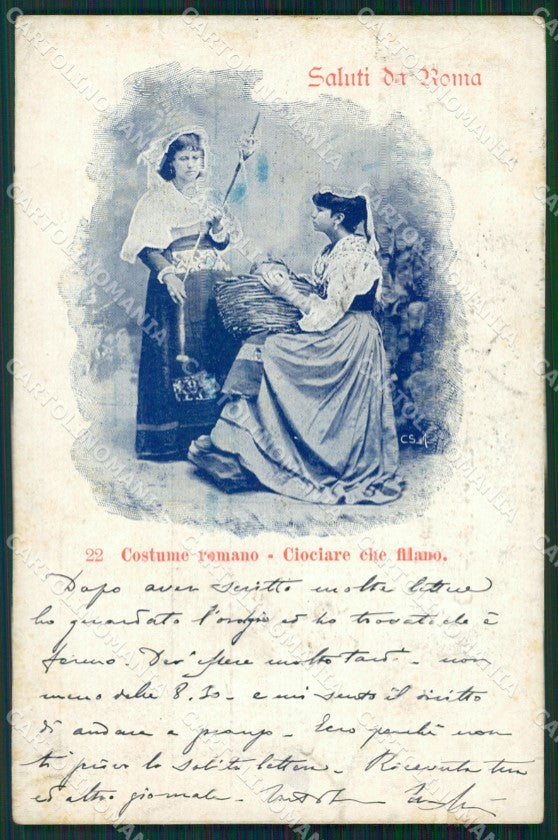 Saluti da Roma
C S M
22 Costume romano - Ciociare che filano.
Dopo aver scritto molte lettere
ho guardato l'orologio ed ho trovato che è
fermo. Dev'essere molto tardi - non
meno delle 8.30 - e mi sento il diritto
di andare a pranzo - Ecco perchè non
ti scrivo la solita lettera - Ricevuta tua
ed altro giornale -